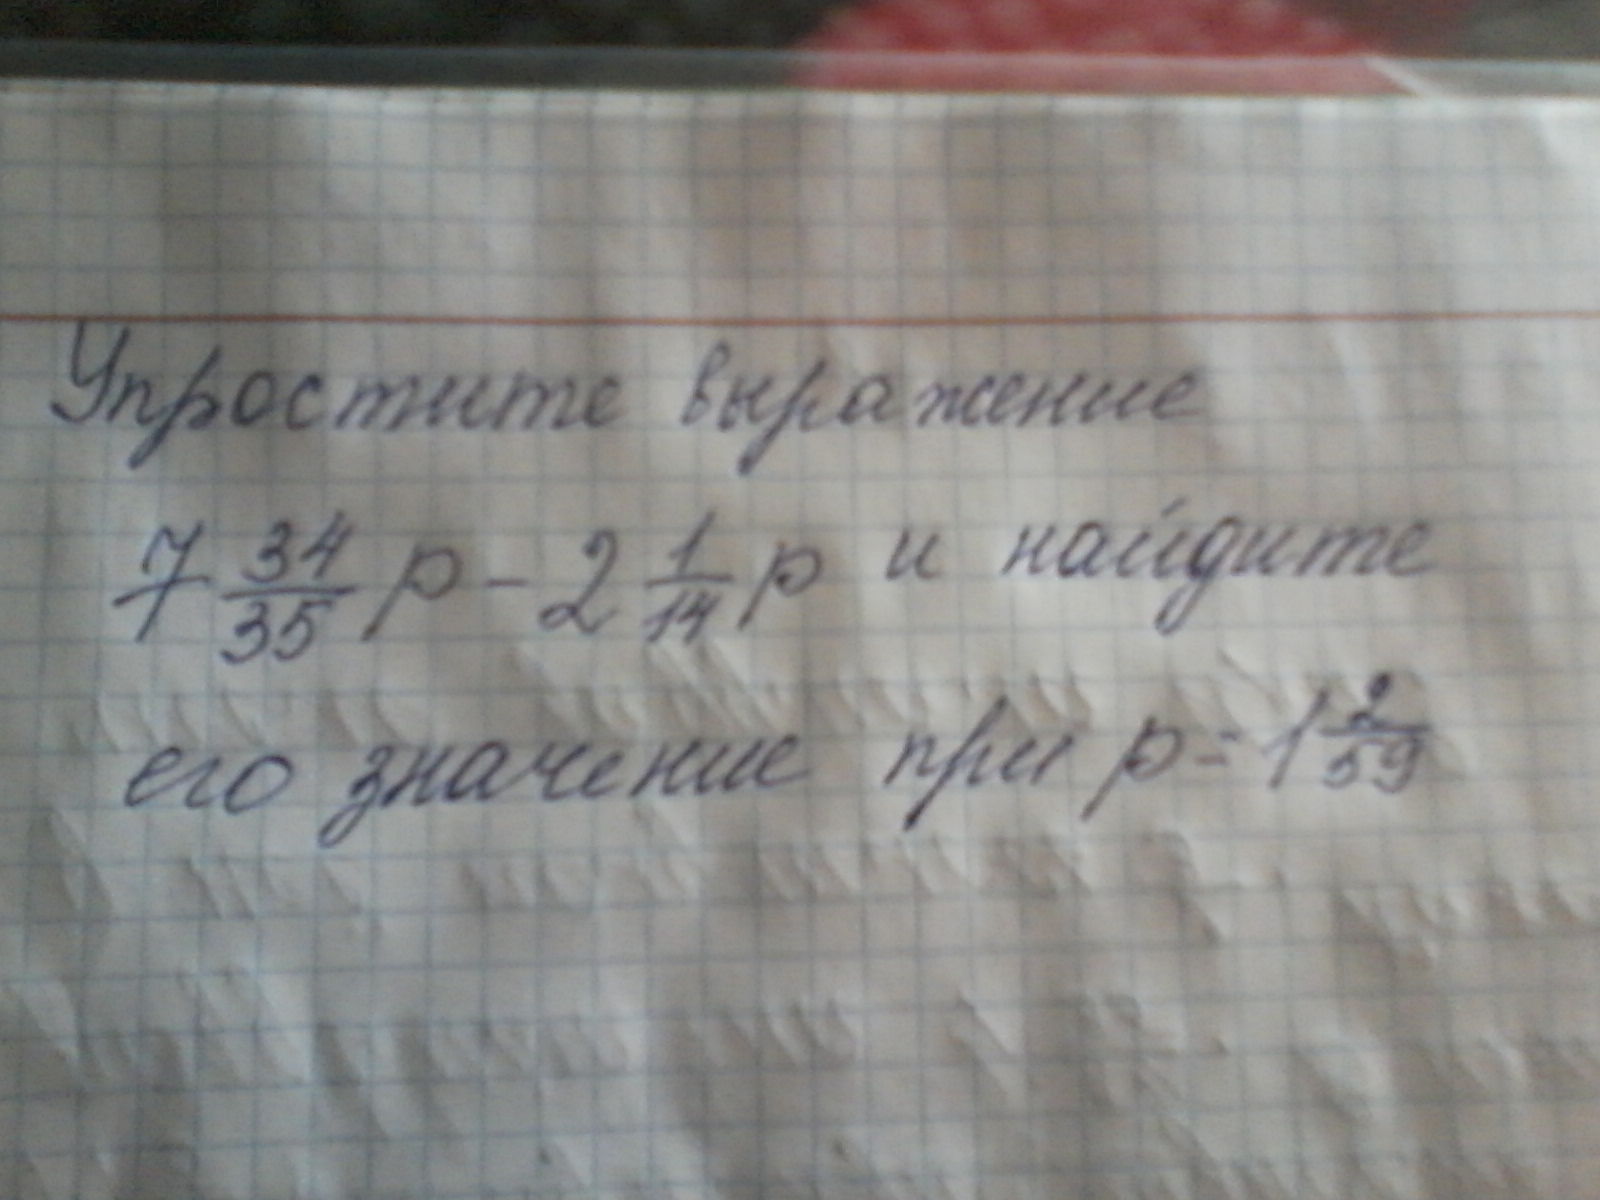 Упростите выражение
7 34/35 p - 2 1/14 p и найдите
его значение при p = 1 2/59